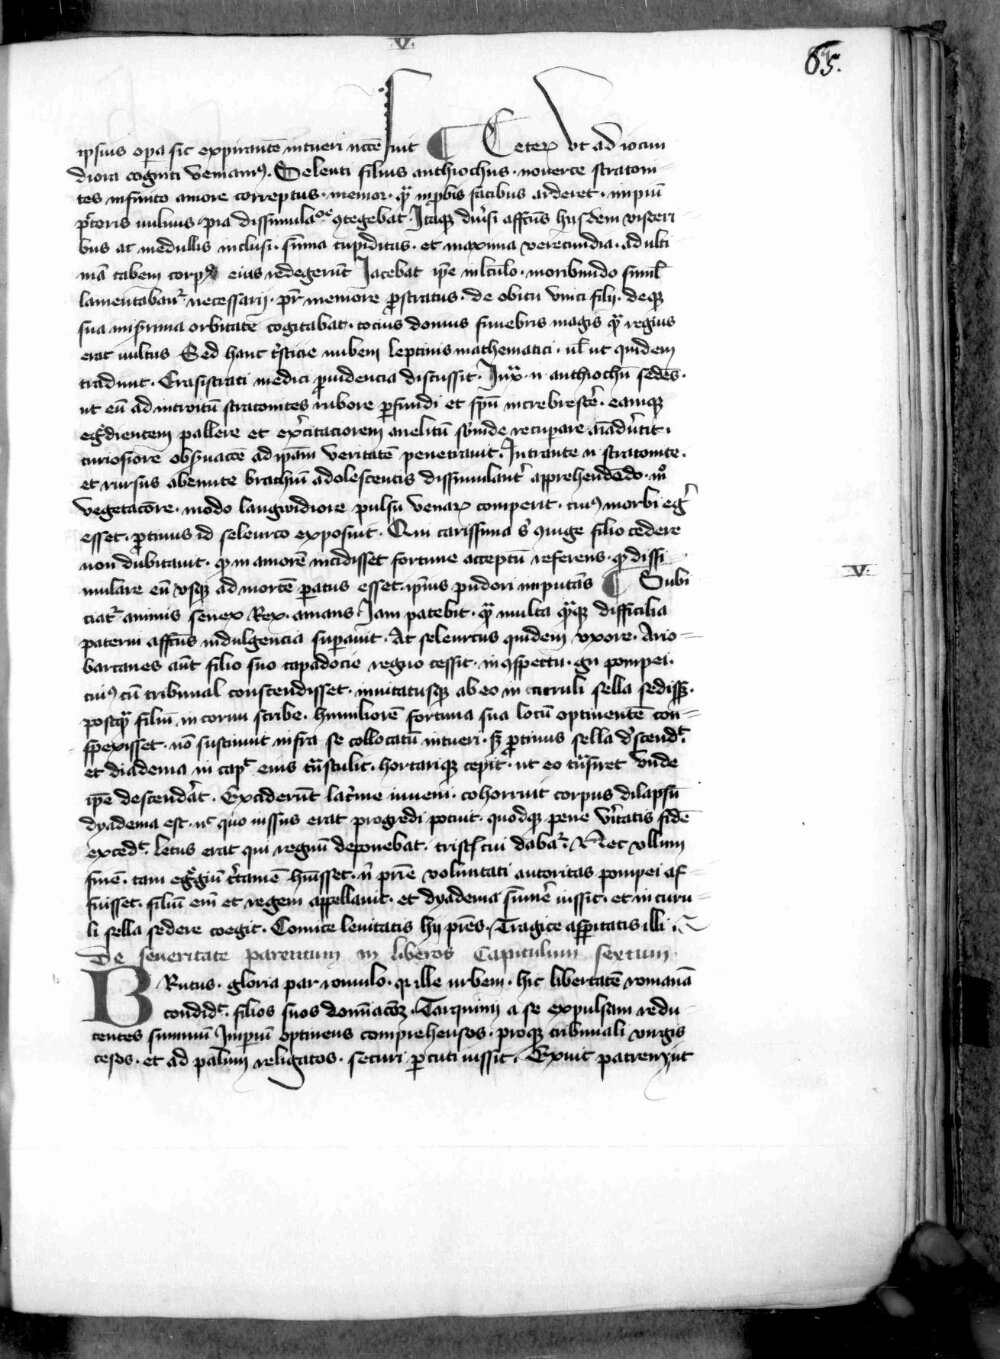 V.
65.
ipsius opa sic expirantē intueri nccē fuit ¶ Ceterꝝ vt ad iocun
diora cogniti veniamꝰ. Seleuti filius anthiochus. nouerce straton-
tes infinito amore correptus. memor. qͣ improbis facibus arderet. impiū
pctoris vulnus. pia dissimulaᵒⁿᵉ ꝯtegebat. Itaqꝫ diuſi affcūs hisdem visceri
bus ac medullis inclusi. sūma cupiditas. et maxima verecundia. ad ulti
mā tabem corpꝰ eius redegerūt Iacebat ipe in lculo. moribundo simil
lamentabantʳ necessarij. pr̄ memore ꝓstratus. de obitu vnici filij. deqꝫ
sua miſrima orbitate cogitabat. tocius domus funebris magis qͣ regius
erat vultus Sed hanc tͥsticie nubem leptinis mathematici. ul ut quidem
tradunt. Erasistrati medici ꝓuidencia discussit. Iuxͣ n anthiochū sedēs.
ut eū ad introitū stratonices rubore ꝑfundi et spū increbrescere. eamqꝫ
egͥdientem pallere et excitaciorem anelitū subinde recuperare aīaduertit.
curiosiore obſuacōe ad ipam veritatē penetrauit. Intrante n stratonice.
et rursus abeunte brachiū adolescentis dissimulantͥ apprehendēdo. mᵒ
vegetacōre. modo langwidiore pulsu venaꝝ comperit. cuiꝰ morbi egͥ
esset. ꝓtinus id seleuco exposuit. Qui carissima sͥ ꝯiuge filio cedere
non dubitauit. qͩ in amorē incidisset fortune acceptū referens. qͩ dissi
mulare eū vsqꝫ ad mortē ꝑatus esset. ipius pudori imputās ¶ Subi
V.
ciatʳ animis senex Rex. amans Iam patebit. qͣ multa qͣqꝫ difficilia
paterni affcūs indulgencia suꝑauit. At seleucus quidem vxore. Ario-
barcanes aūt filio suo capadocie regno cessit. in ꝯspectu. gn pompei.
cuiꝰ cū tribunal conscendisset. inuitatusqꝫ ab eo in curruli sella sedissꝫ.
postqͣ filiū in cornu scribe. humiliorē fortuna sua locū optinentē con-
spexisset. nō sustinuit infra se collocatū intueri. sꝫ ꝓtinus sella dscendᵗ.
et diadema in capᵗ eius tͣnstulit. hortariqꝫ cepit. ut eo tͣnsiret vnde
ipe descenderat. Exciderūt lacrime iuueni. cohorruit corpus dilapsū
dyadema est. nͨ quo iussus erat progredi potuit. quodqꝫ pene veritatis fidē
excedᵗ. letus erat qui regnū deponebat. tristꝭ cui dabatʳ. Nec vllum
finē. tam egͥgiū cͥtamē hūisset. nͥ pͥrie voluntati autoritas pompei af
fuisset. filiū em et regem appellauit. et dyadema sūmē iussit. et in curu-
li sella sedere coegit. Comice lenitatis hij pr̄es. Tragice aspitatis illi.
De seueritate parentum in liberos Capitulum sextum.
BRutus. gloria par romulo. qꝛ ille urbem. hic libertatē romanā
condidᵗ. filios suos dominacōꝫ. Tarquinij a se expulsam redu-
centes summū Impiū optinens comprehensos. proqꝫ tribunali virgis
cesos. et ad palum religatos. securi ꝑcuti iussit. Exuit patrem, vt